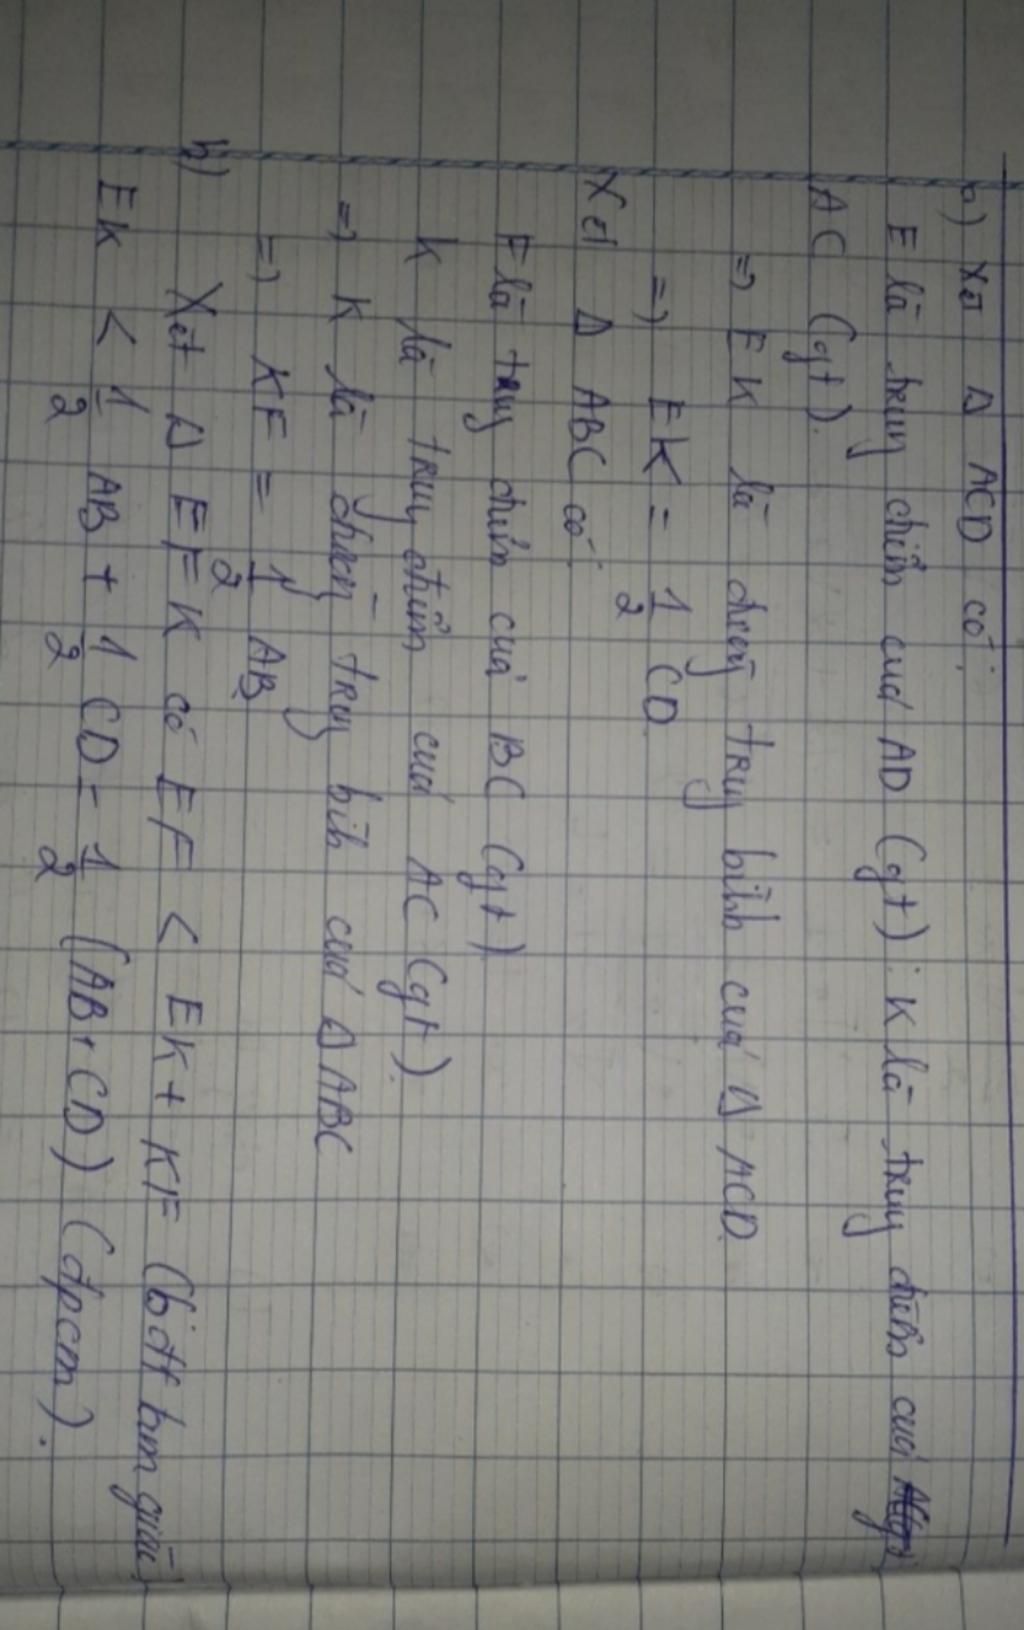 a) Xét Δ ACD có:
E là trung điểm của AD (gt); K là trung điểm của
AC (gt).
=> EK là đường trung bình của Δ ACD.
=> EK = 1/2 CD
Xét Δ ABC có:
F là trung điểm của BC (gt)
K là trung điểm của AC (gt).
=> K là đường trung bình của Δ ABC
=> KF = 1/2 AB
b) Xét Δ EFK có EF < EK + KF (bđt tam giác)
EK < 1/2 AB + 1/2 CD = 1/2 (AB + CD) (đpcm).